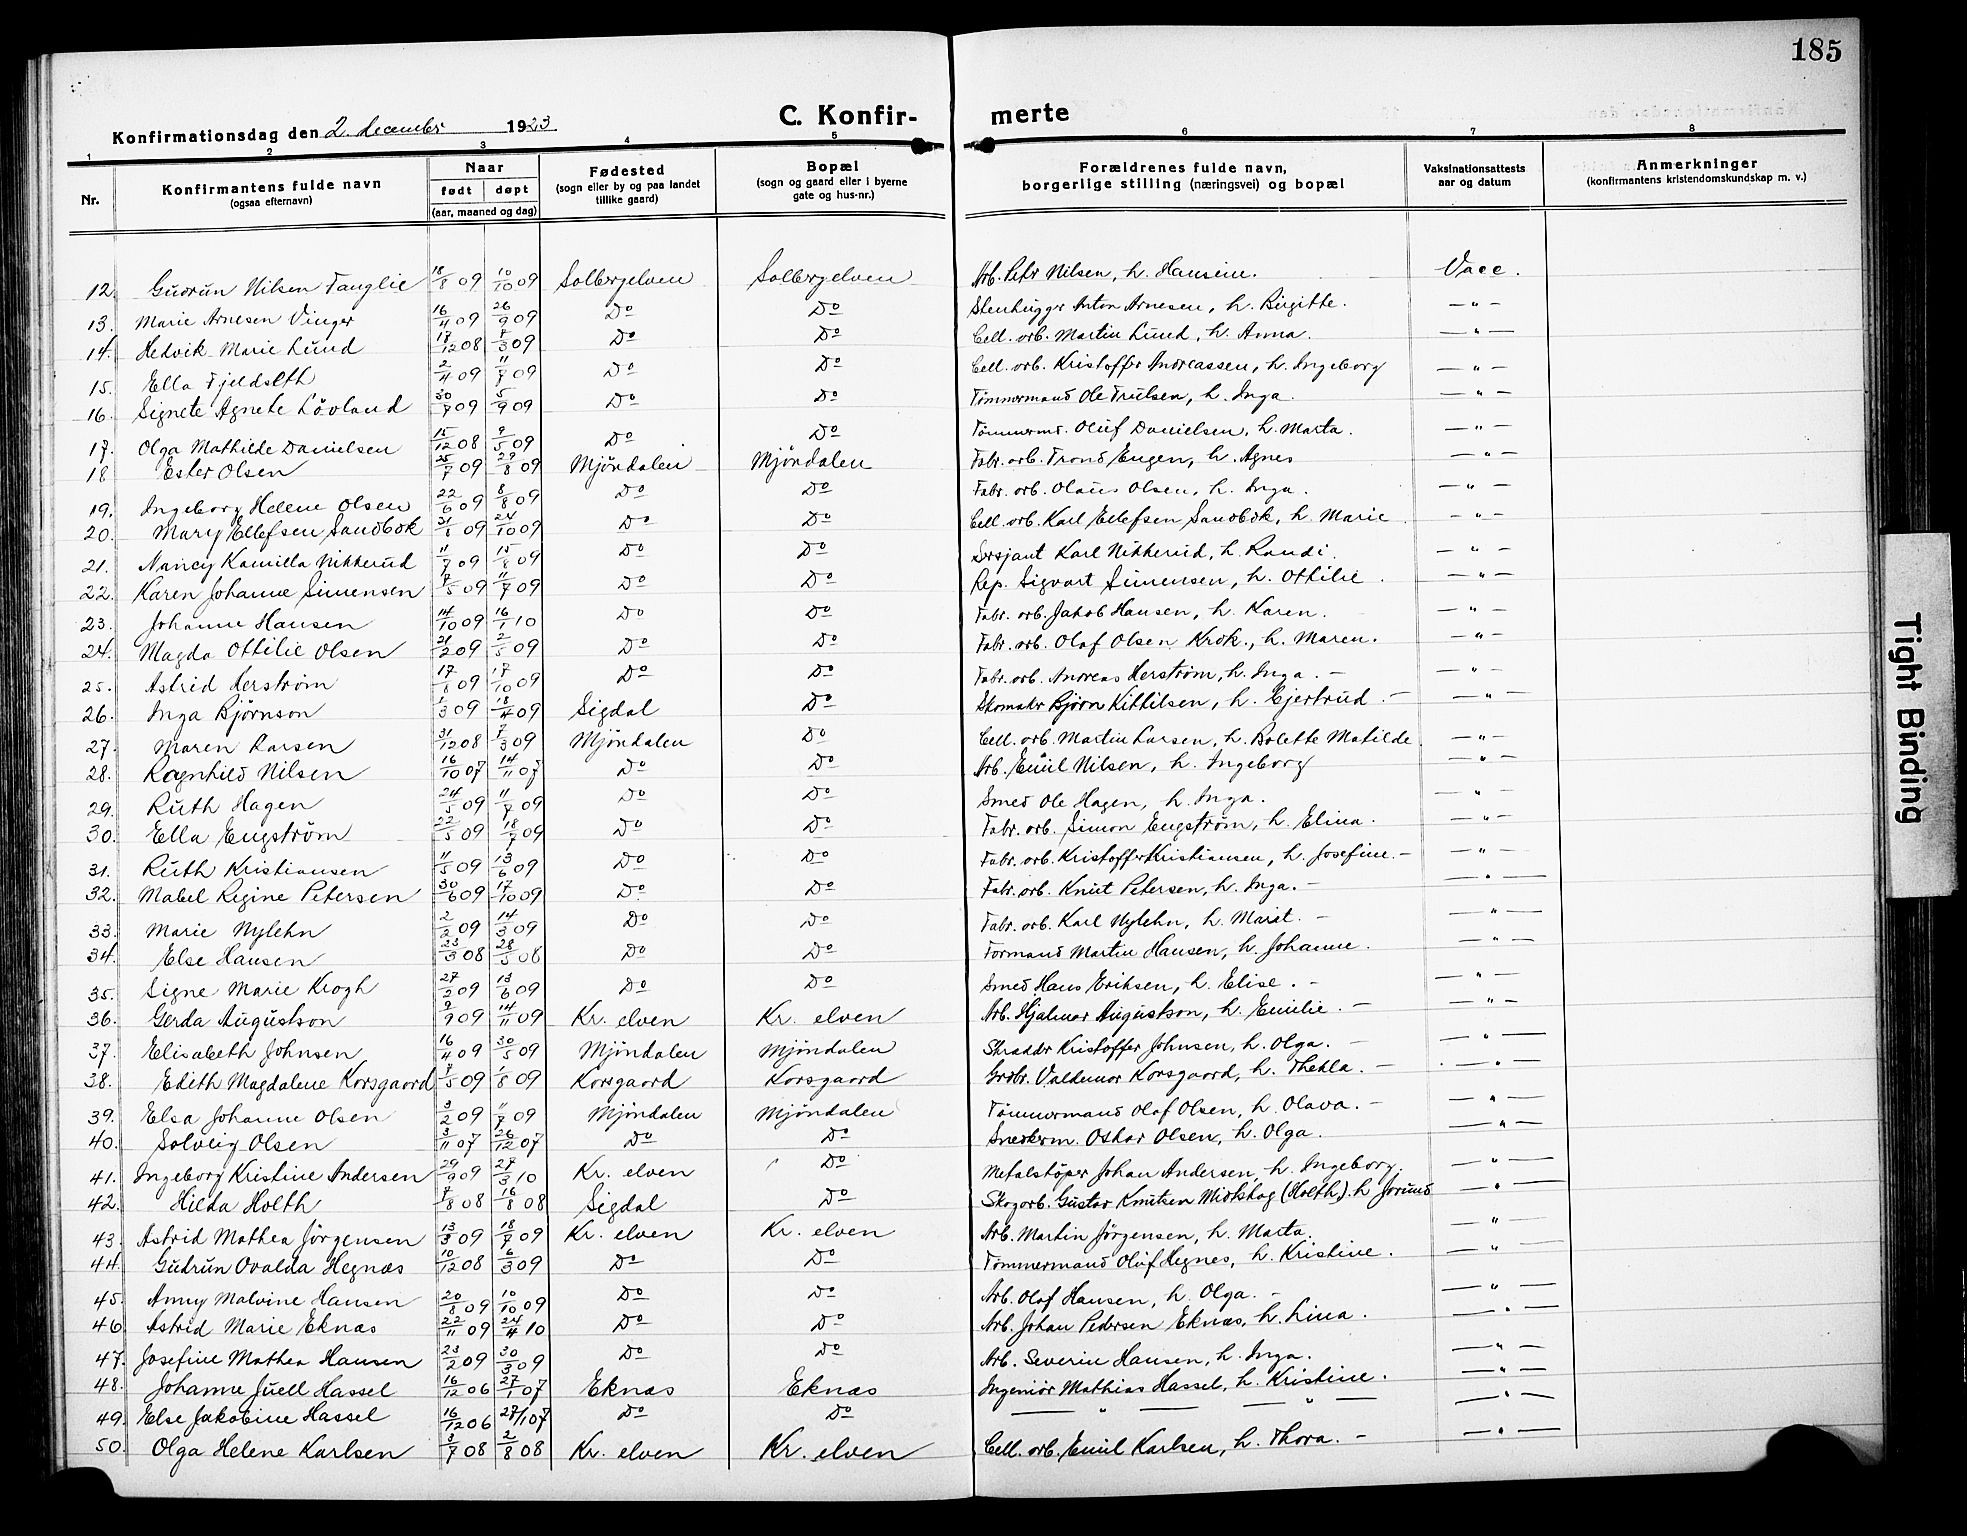 185
C. Konfir- merte
Konfirmationsdag den 2. december 1923
1 2 3 4 5 6 7 8
Nr.
Konfirmantens fulde navn
(ogsaa efternavn)
Naar
født døpt
(aar, maaned og dag)
Fødested
(sogn eller by og paa landet
tillike gaard)
Bopæl
(sogn og gaard eller i byerne
gate og hus-nr.)
Forældrenes fulde navn,
borgerlige stilling (næringsvei) og bopæl
Vaksinationsattests
aar og datum
Anmerkninger
(konfirmantens kristendomskundskap m. v.)
12. Gudrun Nilsen Fanglie 18/8 09 10/10 09 Solbergelven Solbergelven Arb. Petr Nilsen, h. Hansine. Vacc.
13. Marie Arnesen Vinger 16/4 09 26/9 09 Do Do Stenhugger Anton Arnesen, h. Birgitte. — " —
14. Hedvik Marie Lund 17/12 08 7/3 09 Do Do Cell. arb. Martin Lund, h. Anna. — " —
15. Ella Fjeldseth 2/4 09 11/7 09 Do Do Cell. arb. Kristoffer Andreassen, h. Ingeborg — " —
16. Signete Agnete Lövland 30/7 09 5/9 09 Do Do Tömmermand Ole Trulsen, h. Inga. — " —
17. Olga Mathilde Danielsen 15/12 08 9/5 09 Do Do Tömmermd. Oluf Danielsen, h. Marta. — " —
18 Ester Olsen 25/7 09 29/8 09 Mjöndalen Mjöndalen Fabr. arb. Trond Eugen, h. Agnes — " —
19. Ingeborg Helene Olsen 22/6 09 8/8 09 Do Do Fabr. arb. Olaus Olsen, h. Inga. — " —
20. Mary Ellefsen Sandbök 31/8 09 24/10 09 Do Do Cell. arb. Karl Ellefsen Sandbök, h. Marie — " —
21. Nancy Kamilla Nikkerud 11/7 09 15/8 09 Do Do Sersjant Karl Nikkerud, h. Randi. — " —
22. Karen Johanne Simensen 7/5 09 11/7 09 Do Do Rep. Sigvart Simensen, h. Ottilie. — " —
23. Johanne Hansen 14/10 09 16/1 10 Do Do Fabr. arb. Jakob Hansen, h. Karen. — " —
24. Magda Ottilie Olsen 21/2 09 2/5 09 Do Do Fabr. arb. Olaf Olsen Krok., h. Maren. — " —
25. Astrid Herström 17/8 09 17/10 09 Do Do Fabr. arb. Andreas Herström, h. Inga. — — " —
26. Inga Björnson 1/3 09 18/4 09 Sigdal Do Skomaker Björn Kittilsen, h. Gjertrud. — — " —
27. Maren Larsen 31/12 08 7/3 09 Mjöndalen Do Cell. arb. Martin Larsen, h. Bolette Matilde. — " —
28. Ragnhild Nilsen 16/10 07 14/11 07 Do Do Arb. Emil Nilsen, h. Ingeborg — " —
29. Ruth Hagen 24/5 09 11/7 09 Do Do Smed Ole Hagen, h. Inga. — " —
30. Ella Engström 22/5 09 18/7 09 Do Do Fabr. arb. Simon Engström, h. Elina. — " —
31. Ruth Kristiansen 11/5 09 13/6 09 Do Do Fabr. arb. Kristoffer Kristiansen, h. Josefine. — — " —
32. Mabel Regine Petersen 30/6 09 17/10 09 Do Do Fabr. arb. Knut Petersen, h. Inga. — — " —
33. Marie Nylehn 2/2 09 14/3 09 Do Do Fabr. arb. Karl Nylehn, h. Marit. — — " —
34. Else Hansen 23/3 08 28/5 08 Do Do Formand Martin Hansen, h. Johanne. — " —
35. Signe Marie Krogh 27/2 09 13/6 09 Do Do Smed Hans Eriksen, h. Elise. — — " —
36. Gerda Augustson 9/9 09 14/11 09 Kr. elven Kr. elven Arb. Hjalmar Augustson, h. Emilie. — — " —
37. Elisabeth Johnsen 16/4 09 30/5 09 Mjöndalen Mjöndalen Skrædder Kristoffer Johnsen, h. Olga. — — " —
38. Edith Magdalene Korsgaard 7/5 09 1/8 09 Korsgaard Korsgaard Grdbr. Valdemar Korsgaard, h. Thekla. — — " —
39. Elsa Johanne Olsen 3/2 09 11/7 09 Mjöndalen Mjöndalen Tömmermand Olaf Olsen, h. Olava. — — " —
40. Solveig Olsen 3/11 07 26/12 07 Do Do Snedkerm. Oskar Olsen, h. Olga. — " —
41. Ingeborg Kristine Andersen 29/9 09 27/3 10 Kr. elven Do Metalstöper Johan Andersen, h. Ingeborg. — " —
42. Hilda Holth 7/8 08 16/8 08 Sigdal Do Skogarb. Gustav Knutsen Midtskog (Holth). h Jorund — " —
43. Astrid Mathea Jörgensen 13/3 09 18/7 09 Kr. elven Kr. elven Arb. Martin Jörgensen, h. Marta. — " —
44. Gudrun Ovalda Hegnæs 10/12 08 6/3 09 Do Do Tömmermand Oluf Hegnes, h. Kristine. — " —
45. Anny Malvine Hansen 20/8 09 10/10 09 Do Do Arb. Olaf Hansen, h. Olga. — — " —
46 Astrid Marie Eknæs 22/11 09 24/4 10 Do Do Arb. Johan Pedersen Eknæs, h. Lina. — " —
47. Josefine Mathea Hansen 23/2 09 30/3 09 Do Do Arb. Severin Hansen, h. Inga. — " —
48. Johanne Juell Hassel 16/12 06 27/1 07 Eknæs Eknæs Ingeniør Mathias Hassel, h. Kristine. — " —
49. Else Jakobine Hassel 16/12 06 27/1 07 Do Do — " — " — — " —
50. Olga Helene Karlsen 3/7 08 2/8 08 Kr. elven Kr. elven Cell. arb. Emil Karlsen, h. Thora. — — " —
Tight Binding